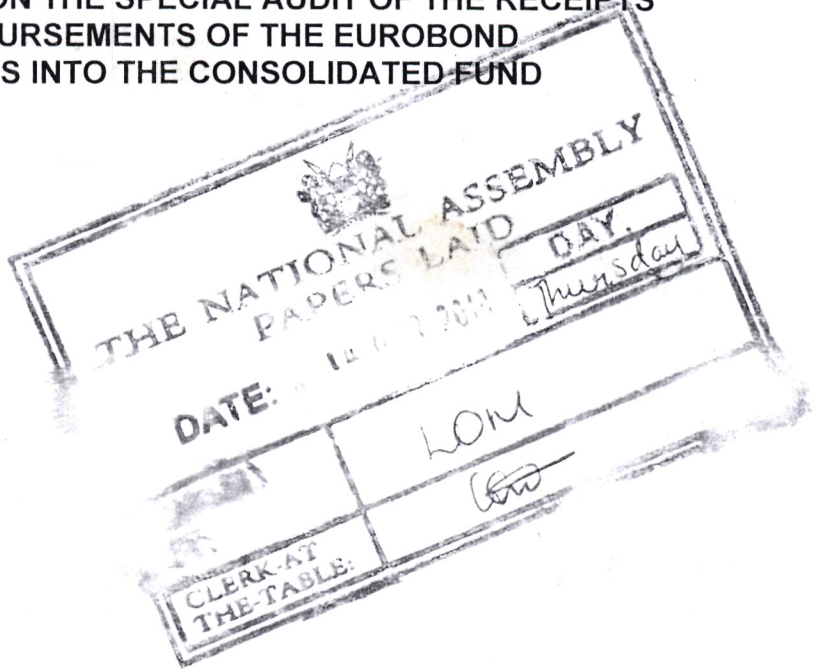 ON THE SPECIAL AUDIT OF THE RECEIPTS
URSEMENTS OF THE EUROBOND
S INTO THE CONSOLIDATED FUND
THE NATIONAL ASSEMBLY
PAPERS LAID
DAY.
Thursday
DATE:
LOM
CLERK-AT
THE-TABLE: